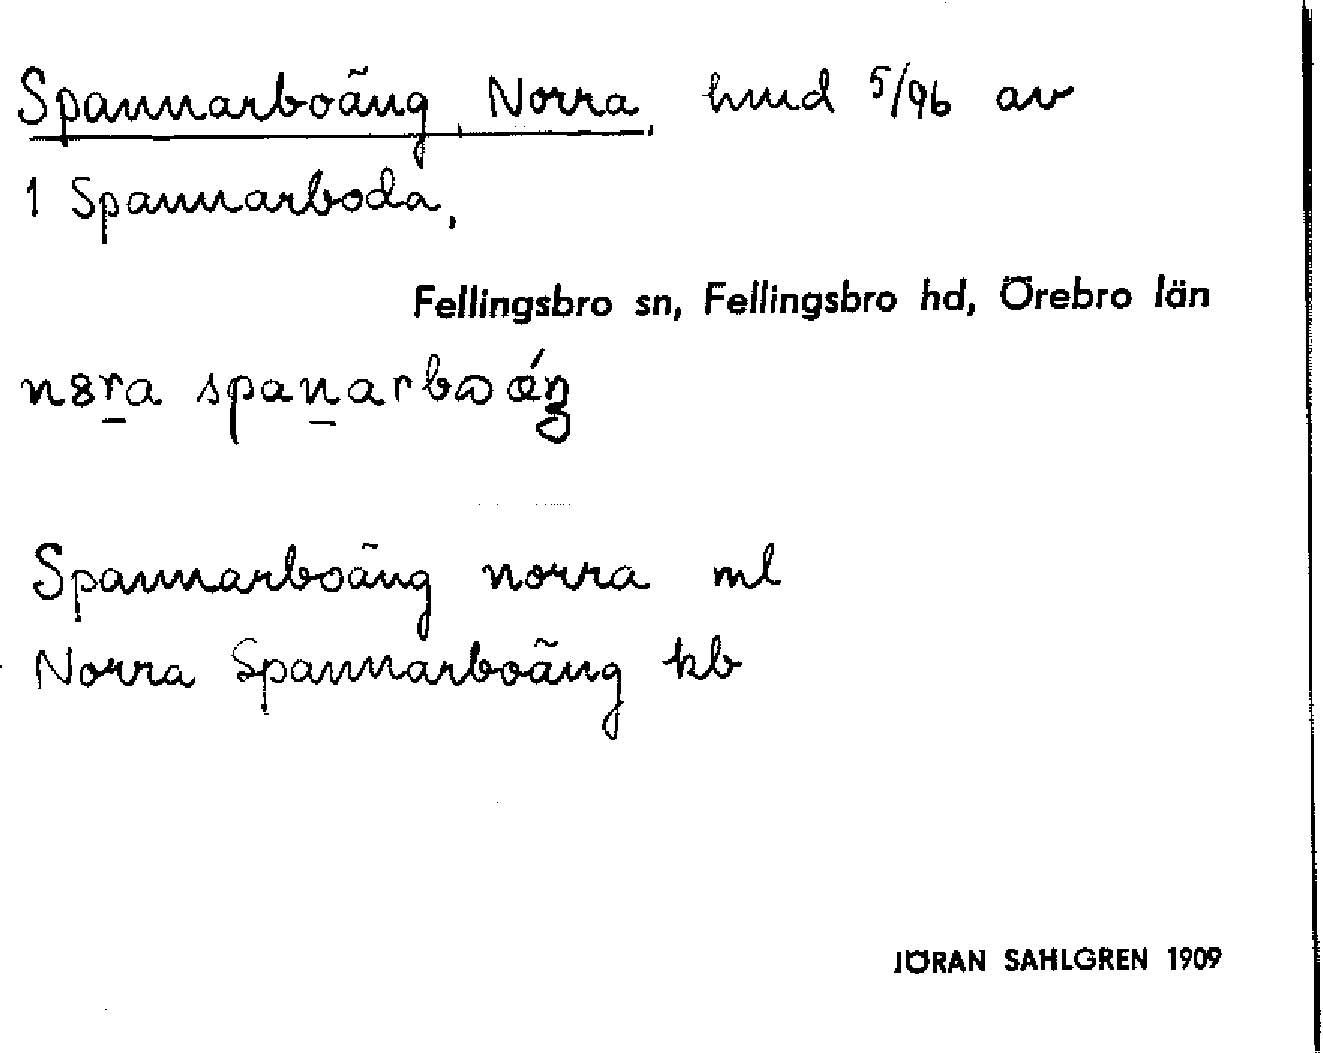 Spannarboäng, Norra, hmd 5/96 av
1 Spannarboda,
Fellingsbro sn, Fellingsbro hd, Örebro län
Spannarboäng norra ml
Norra Spannarboäng kb
JÖRAN SAHLGREN 1909